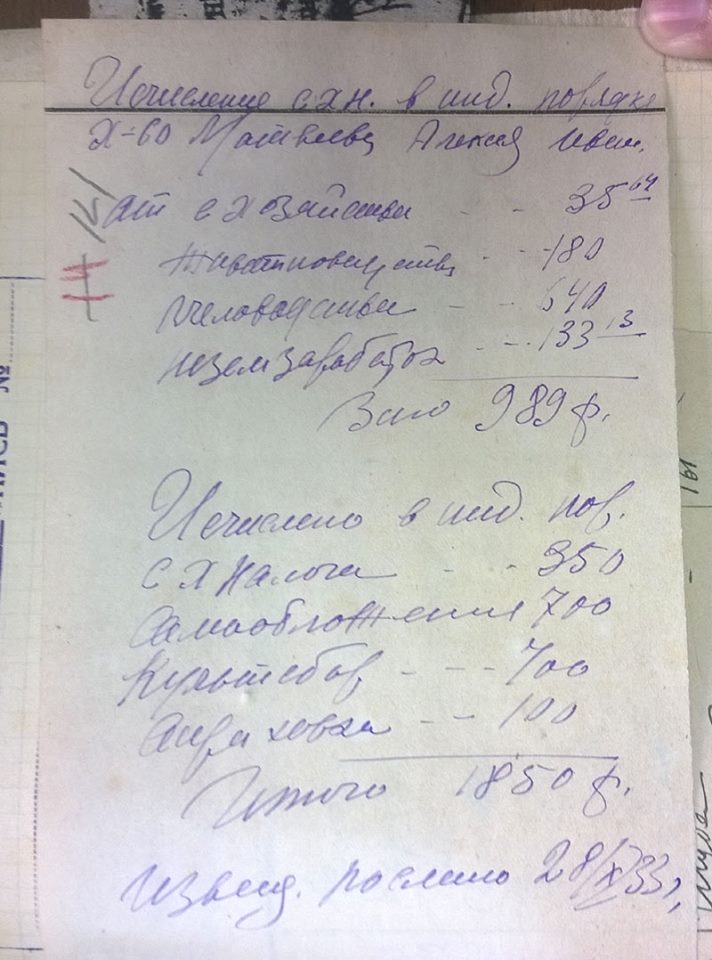 Исчисление схн. в инд. порядке
Х-во Матвеева Алексея Иван.
от с хозяйства - - 35 64
животноводства - - 180
пчеловодства - - 640
неземзаработок - - 133 13
Всего 989 р.
Исчислено в инд. пор.
с х налога - - 350
Самообложения 700
Культсбор - - - 700
Страховка - - 100
Итого 1850 р.
Извещ. послано 28/X 33 г.